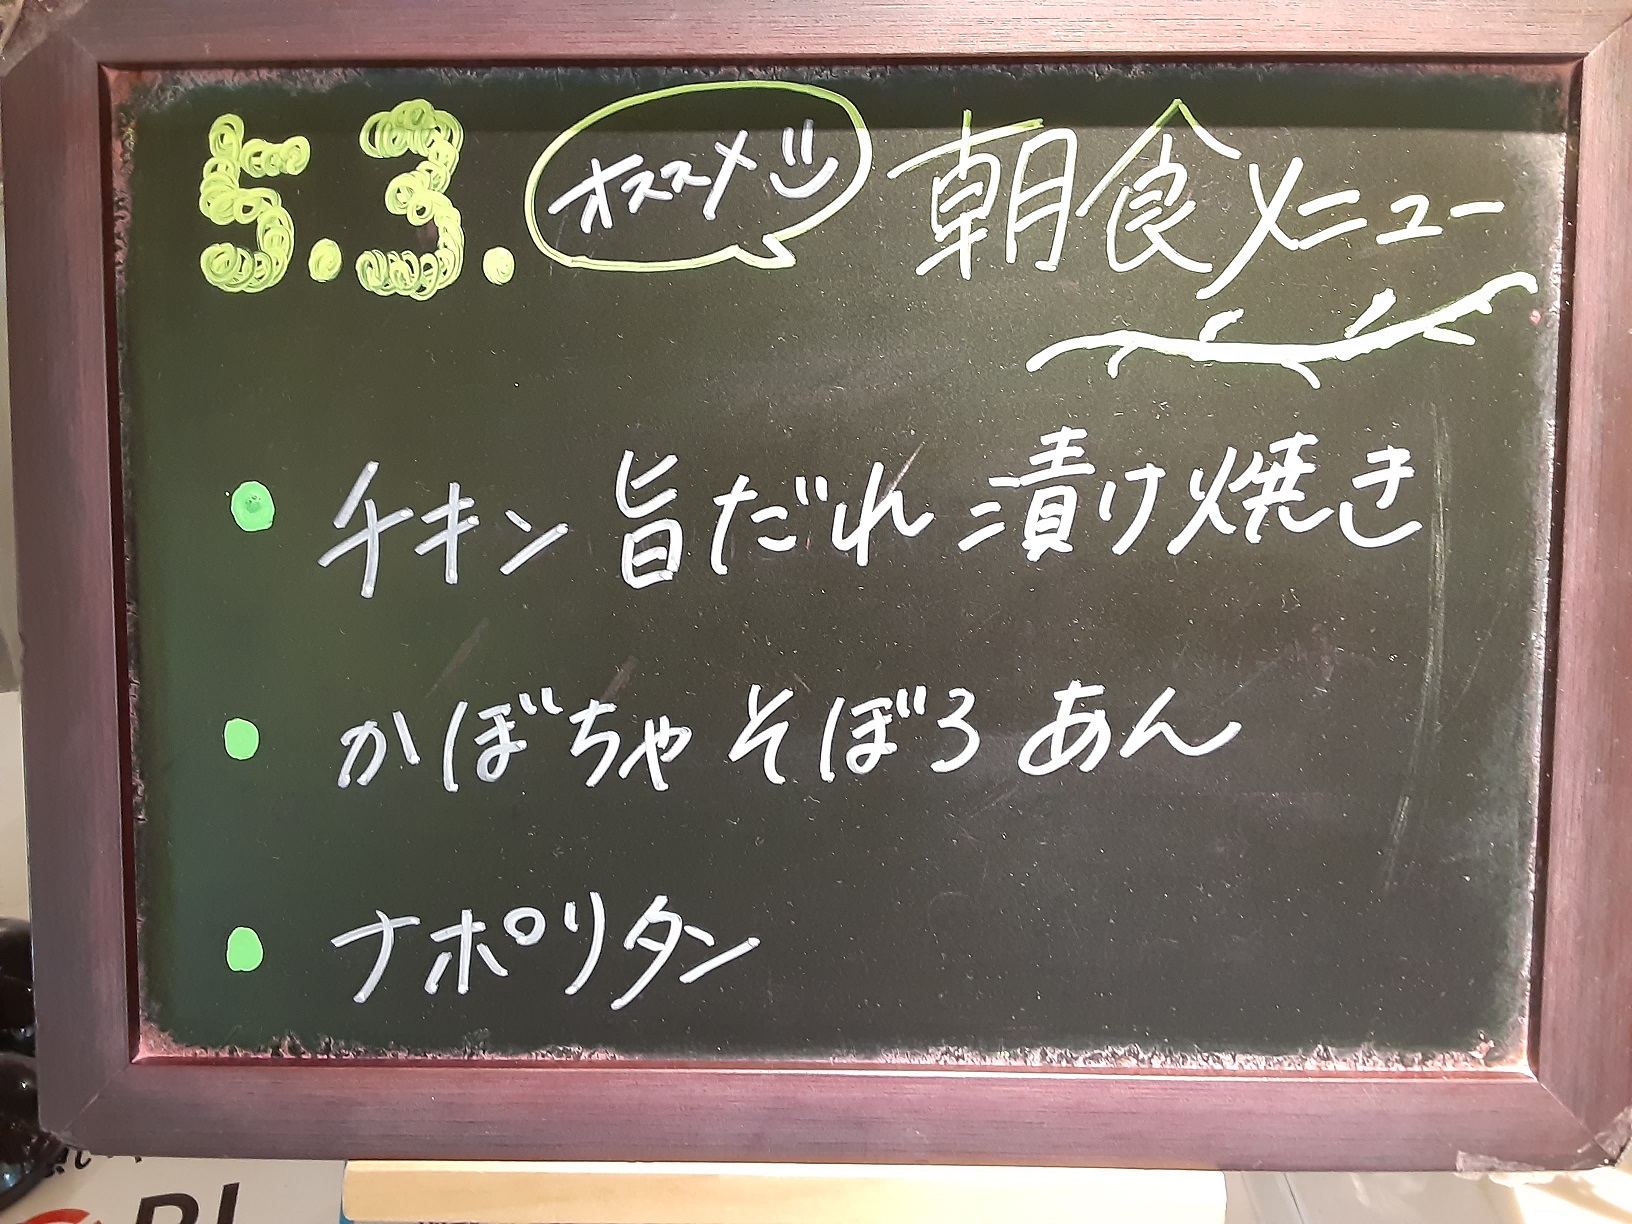 5.3. オススメ 朝食メニュー
• チキン 旨だれ 漬け焼き
• かぼちゃ そぼろ あん
• ナポリタン